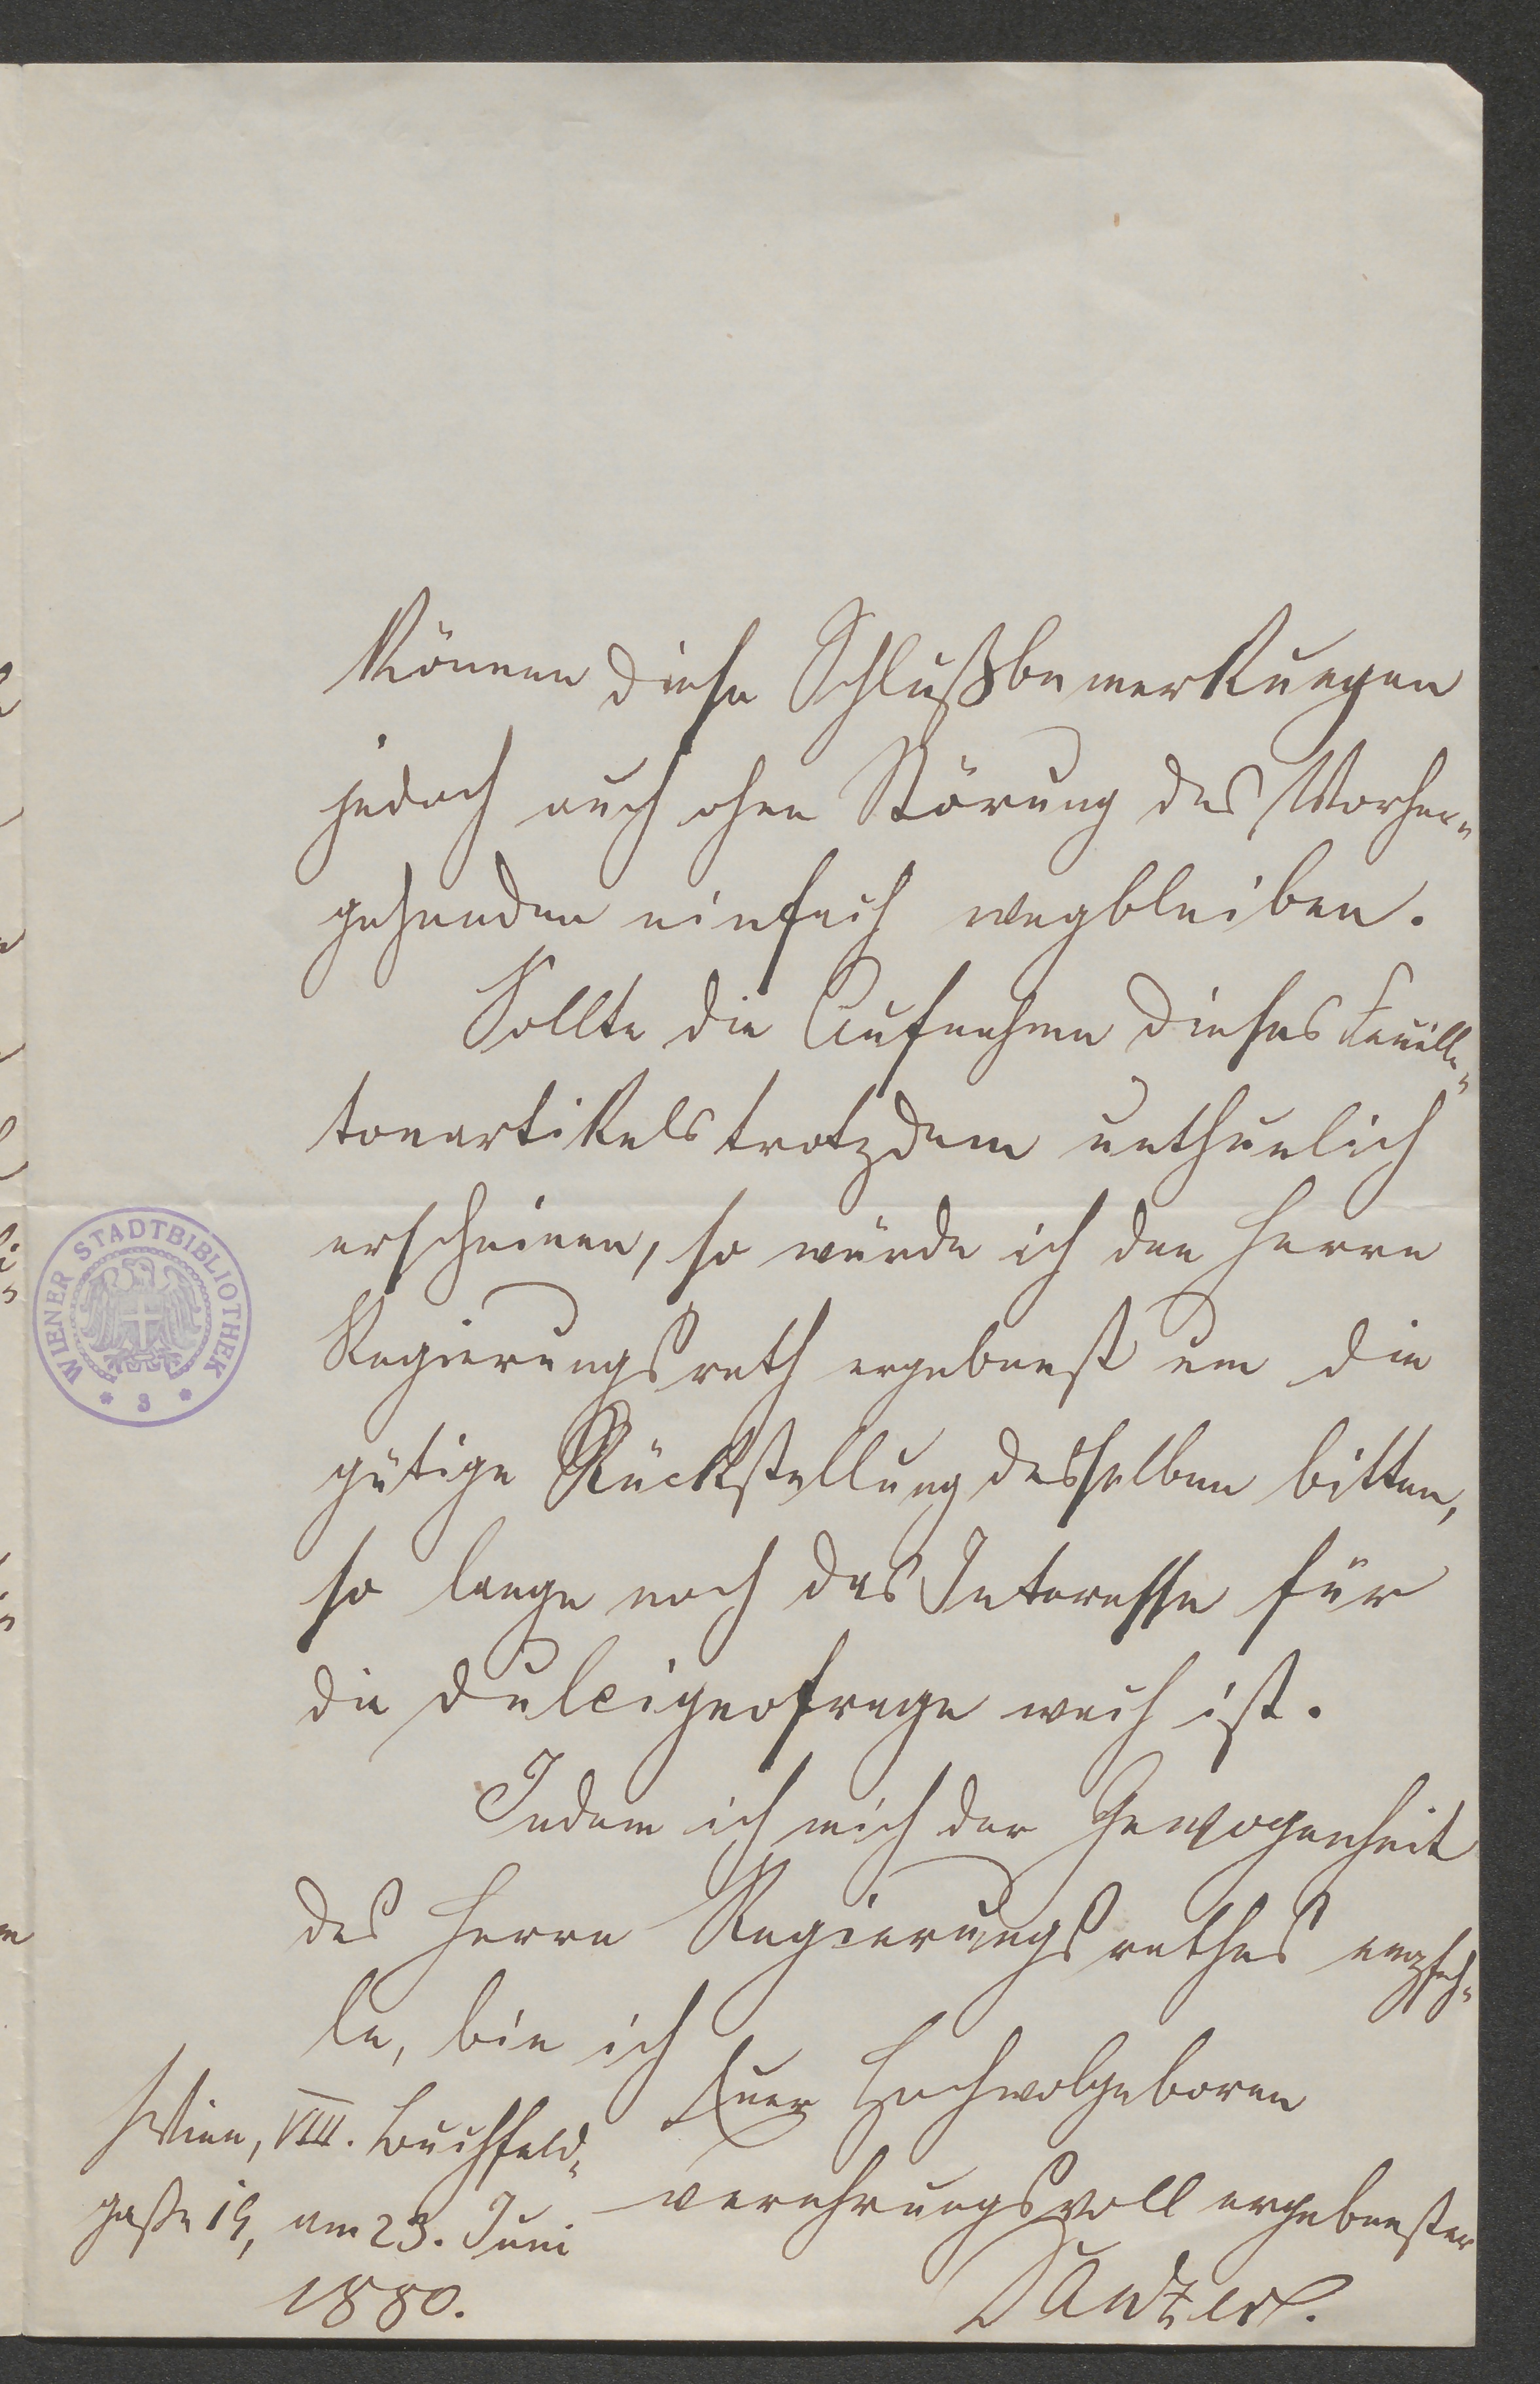 Können diese Schlußbemerkungen
jedoch auch ohne Störung des Vorher-
gehenden einfach wegbleiben.
Sollte die Aufnahme dieses Feuille-
tonartikels trotzdem unthunlich
erscheinen, so würde ich den Herrn
Regierungsrath ergebenst um die
gütige Rückstellung desselben bitten,
so lange noch das Interesse für
die Dulcignofrage wach ist.
Indem ich mich der Gewogenheit
des Herrn Regierungsrathes empfeh-
le, bin ich
Euer Hochwolgeboren
verehrungsvoll ergebenster
Wien, VIII. Buchfeld-
gasse 19, am 23. Juni
1880.
WIENER STADTBIBLIOTHEK
* 3 *